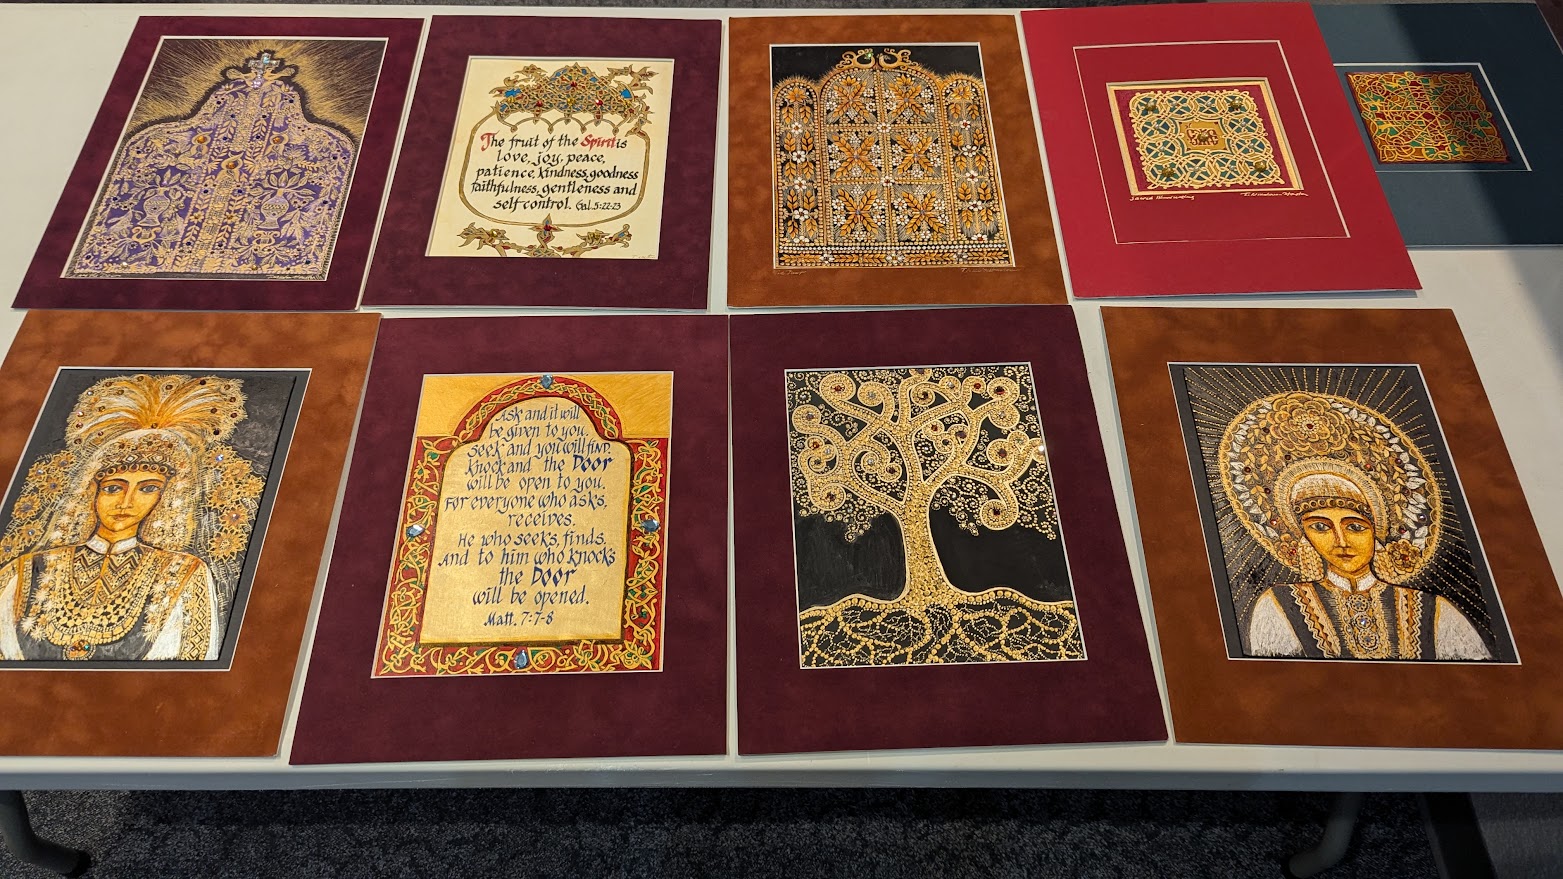 The fruit of the Spirit is
love, joy, peace,
patience, kindness, goodness
faithfulness, gentleness and
self control. Gal. 5:22-23
Ask and it will
be given to you.
Seek and you will find.
Knock and the Door
will be open to you.
For everyone who asks,
receives.
He who seeks, finds,
and to him who knocks
the Door
will be opened.
Matt. 7:7-8